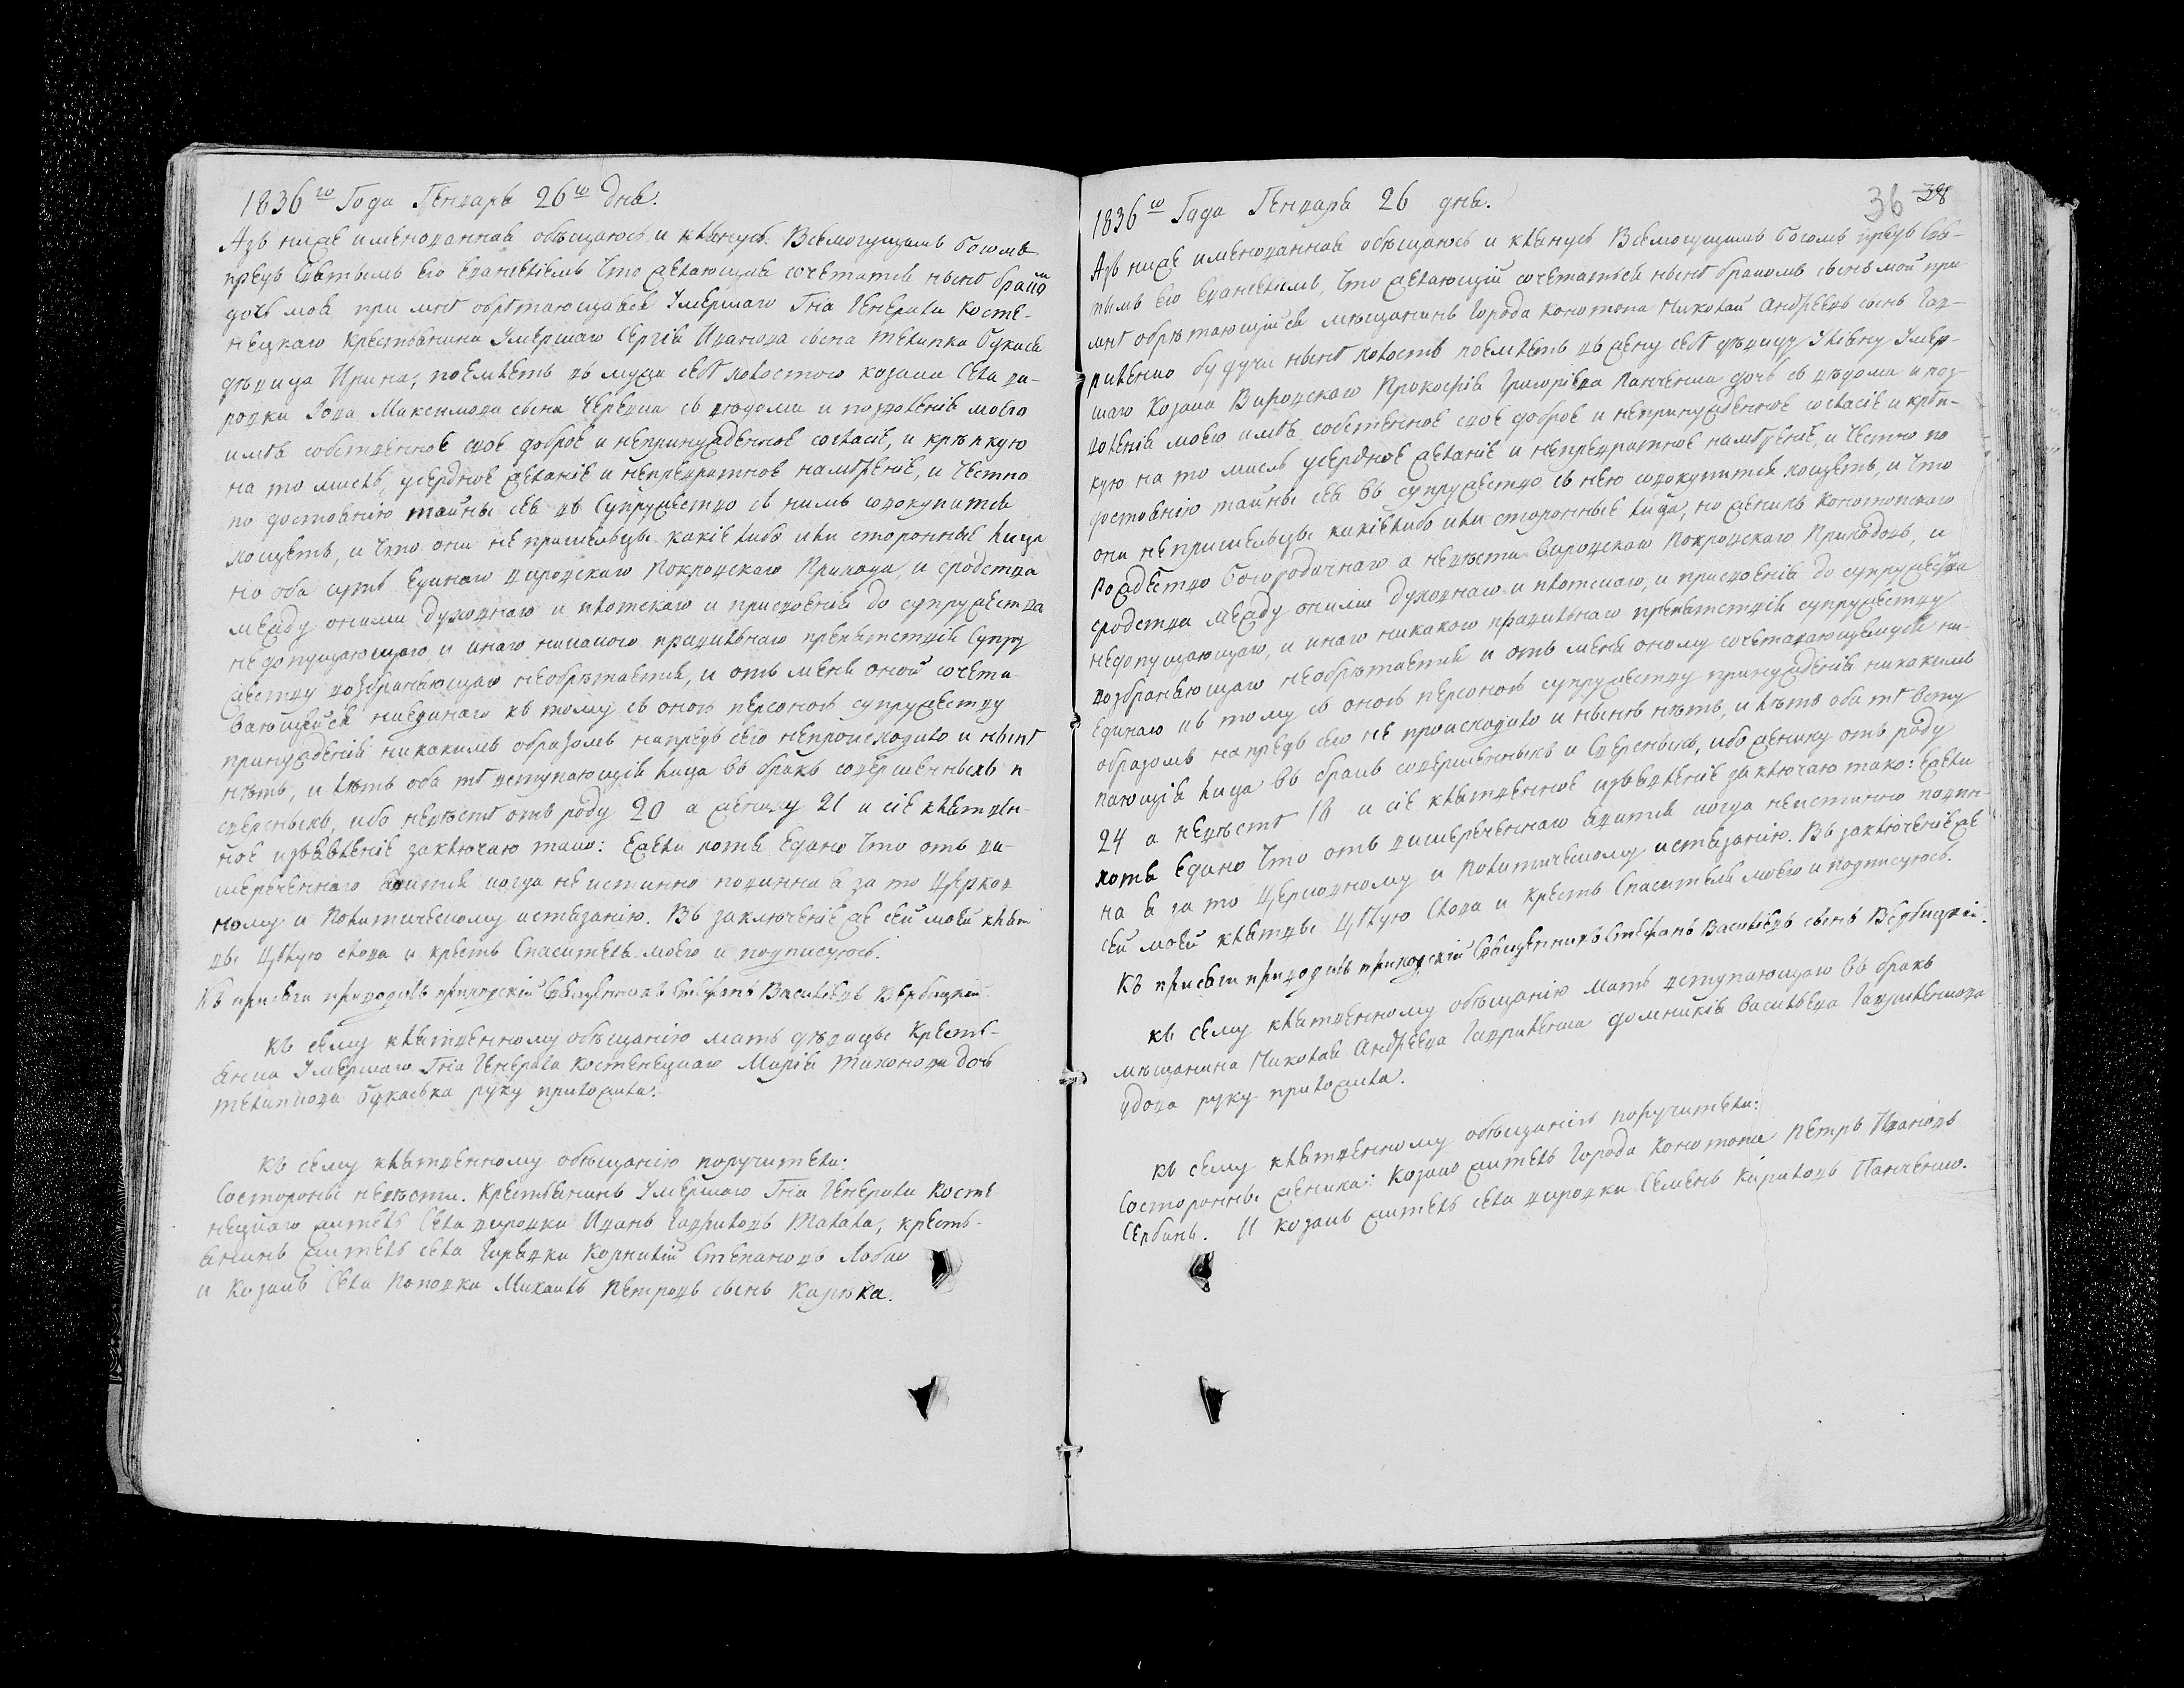 1836го Года Генваря 26го дня.
Азъ ниже именованная обѣщаюсь и клянусь Всемогущимъ богомъ
предъ святымъ его евангеліемъ что желающая сочетатися нынѣ бракомъ
дочь моя при мнѣ обрѣтающаяся Умершаго Гна Генерала Косте-
нецкаго крестьянина Умершаго Сергія Иванова сына
дѣвица Ирина, поемлетъ въ мужа себѣ холостого козака села
Максимова сына съ вѣдома и позволенія моего
имѣя собственное свое доброе и непринужденное согласіе, и крѣпкую
на то мысль, усердное желаніе и непревратное намѣреніе, и честно
по достоянію тайны сея въ супружество съ нимъ совокупитися
хощетъ, и что они не пришельцы какіе либо или сторонные лица
но оба суть единаго вировскаго Покровскаго Прихода, и сродства
между оними духовнаго и плотскаго и присвоенія до супружества
недопущающаго и инаго никакого правильнаго препятствія супру
жеству возбраняющаго необрѣтается, и отъ мене оной сочета-
вающейся ниединаго къ тому съ оною персоною супружеству
принужденія никакимъ образомъ напредь сего непроисходило и нынѣ
нѣтъ, и лѣтъ оба тѣ вступающія лица въ бракъ совершенныхъ и
сверсныхъ, ибо невѣстѣ отъ роду 20 а жениху 21 и сіе клятвен-
ное изъявленіе заключаю тако: ежели хотя едино что отъ вы-
шереченнаго явится когда неистинно повинна я за то церков
ному и политическому истязанію. Въ заключеніе же сей моей клят
вы цѣлую слова и крестъ Спасителя моего и подписуюсь.
Къ присяги приводилъ приходскій священникъ Стефанъ Васильевъ Вербицкій
Къ сему клятвенному обѣщанію мать дѣвицы Кресть-
янка Умершаго Гна Генерала Костенецкаго Марія Тихонова дочь
руку приложила.
Къ сему клятвенному обѣщанію поручители:
Состороны невѣсты. Крестьянинъ Умершаго Гна Генерала Косте
нецкаго житель села вировки Иванъ Гавриловъ Малала, кресть-
янинъ житель села Корнилій Степановъ Лобко
и козакъ села Поповки Михаилъ Петровъ сынъ
1836го Года Генваря 26 дня.
36 38
Азъ ниже именованная обѣщаюсь и клянусь Всемогущимъ богомъ предъ свя-
тымъ его евангеліемъ, что желающій сочетаться нынѣ бракомъ сынъ мой при
мнѣ обрѣтающійся мѣщанинъ города Конотопа Николай Андреевъ сынъ Гав-
риленко будучи нынѣ холостъ поемлетъ въ жену себѣ дѣвицу Улиану Умер-
шаго Козака Вировскаго Прокофія Григоріева Панченка дочь съ вѣдома и поз-
воленія моего имѣя собственное свое доброе и непринужденное согласіе и крѣп-
кую на то мысль усердное желаніе и непревратное намѣреніе, и честно по
достоянію тайны сея въ супружество съ нею совокупитися хощетъ, и что
они непришельцы какіелибо или сторонные лица, но женихъ Конотопскаго
Рождество Богородичнаго а невѣста Вировскаго Покровскаго Приходовъ, и
сродства между оними духовнаго и плотскаго, и присвоенія до супружества
недопущающаго, и инаго никакого правильнаго препятствія супружеству
возбраняющаго необрѣтается и отъ мене оному сочетавающемуся ни-
единаго къ тому съ оною персоною супружеству принужденія никакимъ
образомъ напредь сего не происходило и нынѣ нѣтъ, и лѣтъ оба тѣ всту
пающія лица въ бракъ совершенныхъ и сверсныхъ, ибо жениху отъ роду
24 а невѣстѣ 18 и сіе клятвенное изъявленіе заключаю тако: ежели
хотя едино что отъ вышереченнаго явится когда неистинно повин-
на я за то церковному и политическому истязанію. Въ заключеніе же
сей моей клятвы цѣлую слова и крестъ Спасителя моего и подписуюсь.
Къ присяги приводилъ приходскій священникъ Стефанъ Васильевъ сынъ Вербицкій.
Къ сему клятвенному обѣщанію мать вступающаго въ бракъ
мѣщанина Николая Андреева Гавриленка Домникія Васильева Гавриленкова
вдова руку приложила.
Къ сему клятвенному обѣщанію поручители:
Состоронны жениха: Козакъ житель города Конотопа Петръ Ивановъ
Сербинъ. И козакъ житель села вировки Семенъ Кириловъ Панченко.